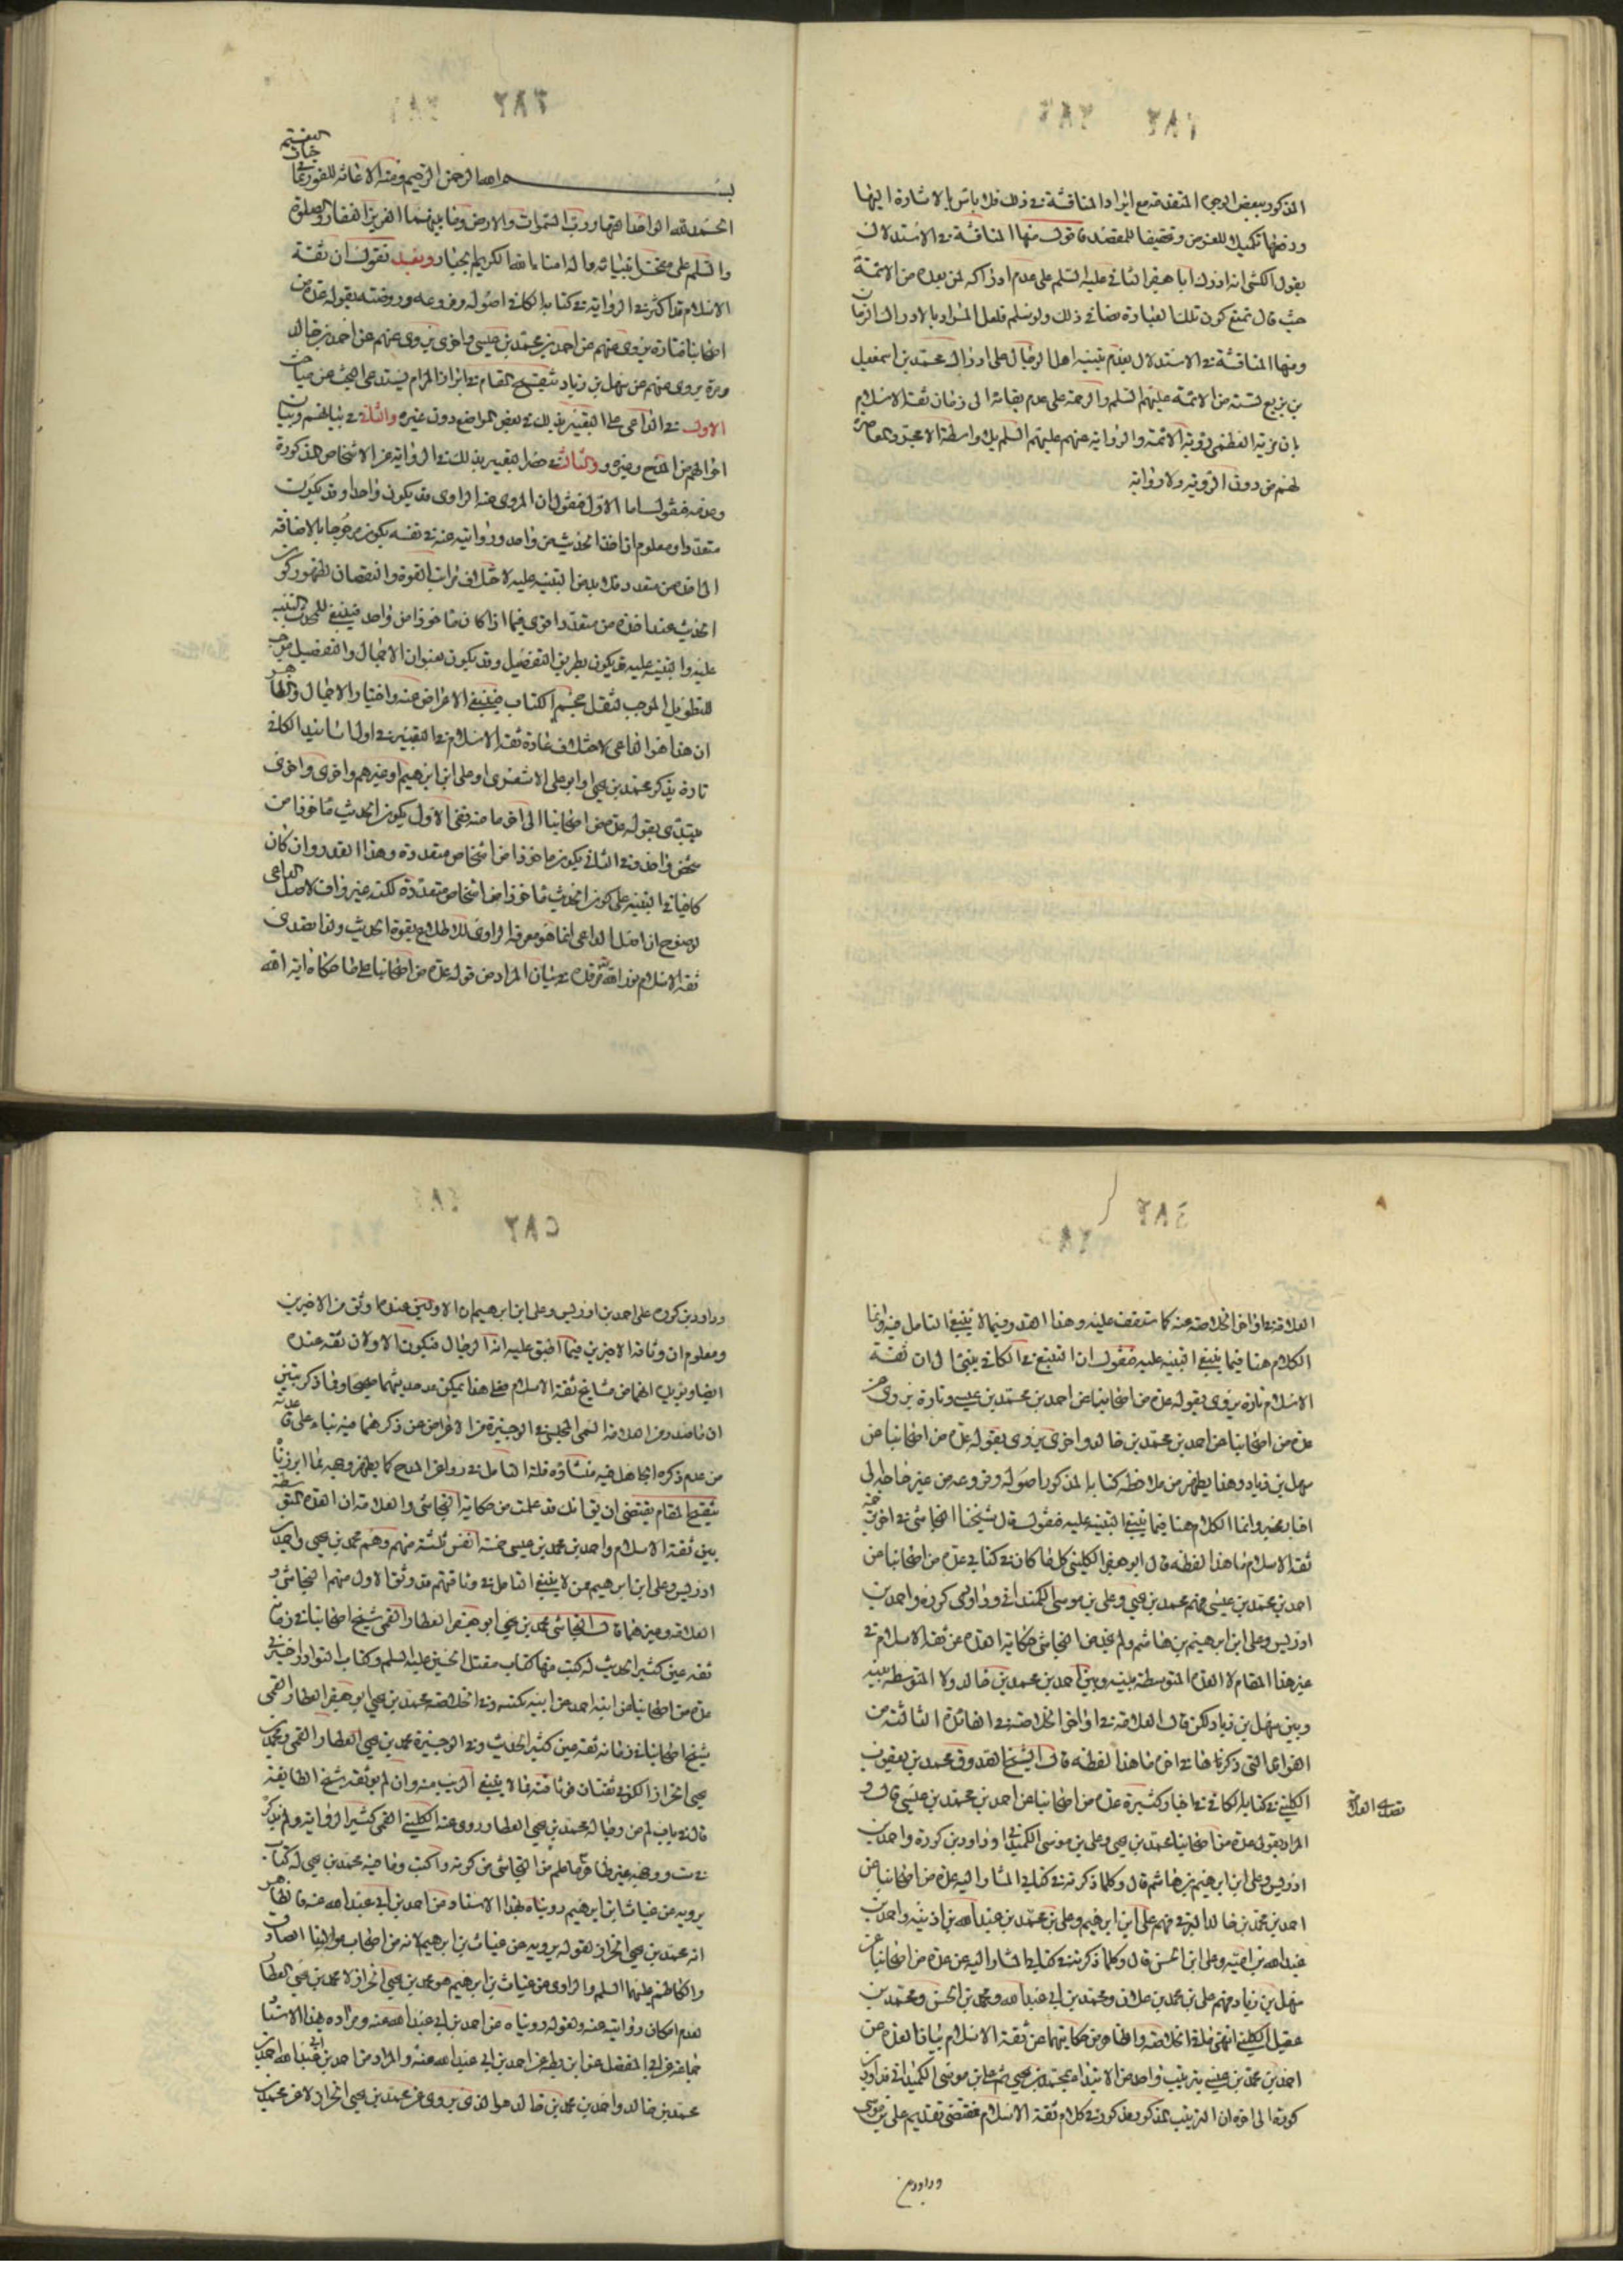 المذكور ببعض الوجوه المتقدمة مع ايراد المناقشة في ذلك فلا باس بالاشارة اليها
ودفعها تكميلا للغرض وتحقيقا للمقصد فاقول منها المناقشة في الاستدلال
بقول الكشي انه ادرك ابا جعفر الثاني عليه السلم على عدم ادراكه لمن بعده من الائمة
حيث قال نمنع كون تلك العبارة نصا في ذلك ولو سلم فلعل المراد بالادراك الزمان
ومنها المناقشة في الاستدلال بعدم تنبيه اهل الرجال على ادراك محمد بن اسمعيل
بن بزيع لستة من الائمة عليهم السلم والرحمة على عدم بقائه الى زمان ثقة الاسلام
بان مزية العظمى رؤية الائمة والرواية عنهم عليهم السلم بلا واسطة لا مجرد المعاصرة
لهم من دون الرؤية ولا رواية
بسم الله الرحمن الرحيم ومنه الاعانة للفوز بما في جنات النعيم
الحمد لله الواحد القهار ورب السموات والارض وما بينهما العزيز الغفار والصلوة
والسلم على منتخل انبيائه واله امناء الله الكريم الجبار وبعد نقول ان ثقة
الاسلام قد اكثر في الرواية في كتابه الكافي اصوله وفروعه وروضته بقوله عدة من
اصحابنا فتارة يروى عنهم عن احمد بن محمد بن عيسى واخرى يروى عنهم عن احمد بن خالد
ومرة يروى عنهم عن سهل بن زياد تنقيح المقام في ابراز المرام يستدعى البحث عن مباحث
الاول في الداعى على التعبير بذلك في بعض المواضع دون غيره والثاني في بيانهم وبيان
احوالهم من المدح وغيره والثالث في هذا التعبير بذلك في الرواية عن الاشخاص المذكورة
وعدمه فنقول اما الاول فنقول ان المروى عنه الراوى قد يكون واحدا وقد يكون
متعددا ومعلوم ان اخذ الحديث من واحد وروايته عنه في نفسه يكون مرجوحا بالاضافة
الى اخذه من متعدد فلا بد من التنبيه عليه لاختلاف مراتب القوة والنقصان لظهور كون
الحديث عند اخذه من متعدد اقوى فيما اذا كان ماخوذا من واحد فينبغى للمحدث التنبيه
عليه والتنبيه عليه قد يكون بطريق التفصيل وقد يكون بعنوان الاجمال والتفصيل موجب
للتطويل الموجب لثقل حجم الكتاب فينبغى الاعراض عنه واختيار الاجمال والظاهر
ان هذا هو الداعى لاختلاف عادة ثقة الاسلام في التعبير في اول اسانيد الكافي
تارة يذكر محمد بن يحيى او ابو على الاشعرى او على ابن ابرهيم او غيرهم واخرى واخرى
يبتدى بقوله عدة من اصحابنا الى اخر ما منه ففى الاول يكون الحديث ماخوذا من
شخص واحد وفي الثاني يكون ماخوذا من اشخاص متعددة وهذا القدر وان كان
كافيا في التنبيه على كون الحديث ماخوذا من اشخاص متعددة لكنه غير واف لاصل الداعى
لوضوح ان اصل الداعى انما هو معرفة الراوى للاطلاع بقوة الحديث ولذا تصدى
ثقة الاسلام نور الله مرقده في بيان المراد من قوله عدة من اصحابنا على ما حكاه اية الله
العلامة في اواخر الخلاصة عنه كما ستقف عليه وهذا القدر فيما لا ينبغى التامل فيه وانما
الكلام هنا فيما ينبغى التنبيه عليه فنقول ان التتبع في الكافي ينبئ الى ان ثقة
الاسلام تارة يروى بقوله عدة من اصحابنا عن احمد بن محمد بن عيسى وتارة يروى عن
عدة من اصحابنا عن احمد بن محمد بن خالد واخرى يروى بقوله عدة من اصحابنا عن
سهل بن زياد وهذا يظهر من ملاحظة كتابه المذكور اصوله وفروعه من غير حاجة الى
وانما الكلام هنا فيما ينبغى التنبيه عليه فنقول قال شيخنا النجاشى في اخر ترجمة
ثقة الاسلام ما هذا لفظه قال ابو جعفر الكليني كل ما كان في كتابي عدة من اصحابنا عن
احمد بن محمد بن عيسى فهم محمد بن يحيى وعلى بن موسى الكمنداني وداود بن كورة واحمد بن
ادريس وعلى ابن ابرهيم بن هاشم ولم نجد من النجاشى حكاية العدة عن ثقة الاسلام في
غير هذا المقام لا العدة المتوسطة بينه وبين احمد بن محمد بن خالد ولا المتوسطة بينه
وبين سهل بن زياد لكن قال العلامة في اواخر الخلاصة في الفائدة الثالثة من
الفوائد التي ذكرها في اخره ما هذا لفظه قال الشيخ الصدوق محمد بن يعقوب
الكليني في كتابه الكافي في اخبار كثيرة عدة من اصحابنا عن احمد بن محمد بن عيسى قال و
المراد بقولى عدة من اصحابنا محمد بن يحيى وعلى بن موسى الكميذاني وداود بن كورة واحمد بن
ادريس وعلى ابن ابرهيم بن هاشم قال وكلما ذكرته في كتابي المشار اليه عدة من اصحابنا عن
احمد بن محمد بن خالد البرقي فهم على ابن ابرهيم وعلى بن محمد بن عبد الله بن اذينه واحمد بن
عبد الله بن اميه وعلى ابن الحسن قال وكلما ذكرته في كتابي المشار اليه عن عدة من اصحابنا عن
سهل بن زياد فهم على بن محمد بن علان ومحمد بن ابي عبد الله ومحمد بن الحسن ومحمد بن
عقيل الكليني انتهى ما في الخلاصة والظاهر من حكايتهما عن ثقة الاسلام بيان العدة عن
احمد بن محمد بن عيسى بترتيب واحد من الابتداء بمحمد بن يحيى ثم على بن موسى الكميذاني فداود بن
كورة الى اخره ان الترتيب المذكور مذكور في كلام ثقة الاسلام فمقتضى تقديم على بن موسى
وداود بن
وداود بن كورة على احمد بن ادريس وعلى ابن ابرهيم ان الاولين عنده اوثق من الاخيرين
ومعلوم ان وثاقة الاخيرين فيما اطبق عليه ائمة الرجال فيكون الاولان ثقة عنده
ايضا ويزيد انهما من مشايخ ثقة الاسلام فعلى هذا يمكن عد حديثهما صحيحا وفيما ذكر تبين
ان ما صدر من العلامة السمى المجلسى في الوجيزة من الاعراض عن ذكرهما فيه بناء على عادته
من عدم ذكره المجاهيل فيه منشاؤه قلة التامل في دواعى المدح كما يظهر وجهه مما ابرزنا
تنقيح المقام يقتضى ان يق انك قد علمت من حكاية النجاشى والعلامة ان العدة المتوسطة
بين ثقة الاسلام واحمد بن محمد بن عيسى خمسة انفس ثلثة منهم وهم محمد بن يحيى واحمد بن
ادريس وعلى ابن ابرهيم ممن لا ينبغى التامل في وثاقتهم قد وثق الاول منهم النجاشى و
العلامة ومن هما قال النجاشى محمد بن يحيى ابو جعفر العطار القمى شيخ اصحابنا في زمانه
ثقه عين كثير الحديث له كتب منها كتاب مقتل الحسين عليه السلم وكتاب النوادر اخبرني
عدة من اصحابنا عن ابنه احمد عن ابيه بكتبه وفي الخلاصة محمد بن يحيى ابو جعفر العطار القمى
شيخ اصحابنا في زمانه ثقة عين كثير الحديث وفي الوجيزة محمد بن يحيى العطار القمى ومحمد بن
يحيى الخزاز الكوفي ثقتان فوثاقته مما لا ينبغى الريب فيه وان لم يوثقه شيخ الطايفة
قال في باب لم من رجاله محمد بن يحيى العطار روى عنه الكليني القمى كثير الرواية ولم يذكره
في ست ووجهه غير ظاهر مع ما علم من النجاشى من كونه ذا كتب وما فيه محمد بن يحيى له كتاب
يرويه عن غياث ابن ابرهيم رويناه بهذا الاسناد عن احمد بن ابي عبد الله عنه فالظاهر
انه محمد بن يحيى الخزاز لقوله يرويه عن غياث بن ابرهيم لانه من اصحاب مولينا الصادق
والكاظم عليهما السلم والراوى عن غياث بن ابرهيم هو محمد بن يحيى الخزاز لا محمد بن يحيى العطار
لعدم امكان روايته عنه ولقوله رويناه عن احمد بن ابي عبد الله عنه ومراده بهذا الاسناد
جماعة عن ابي المفضل عن ابن بطه عن احمد بن ابي عبد الله عنه والمراد من احمد بن ابي عبد الله احمد بن
محمد بن خالد واحمد بن محمد بن خالد هو الذى يروى عن محمد بن يحيى الخزاز لا عن محمد بن